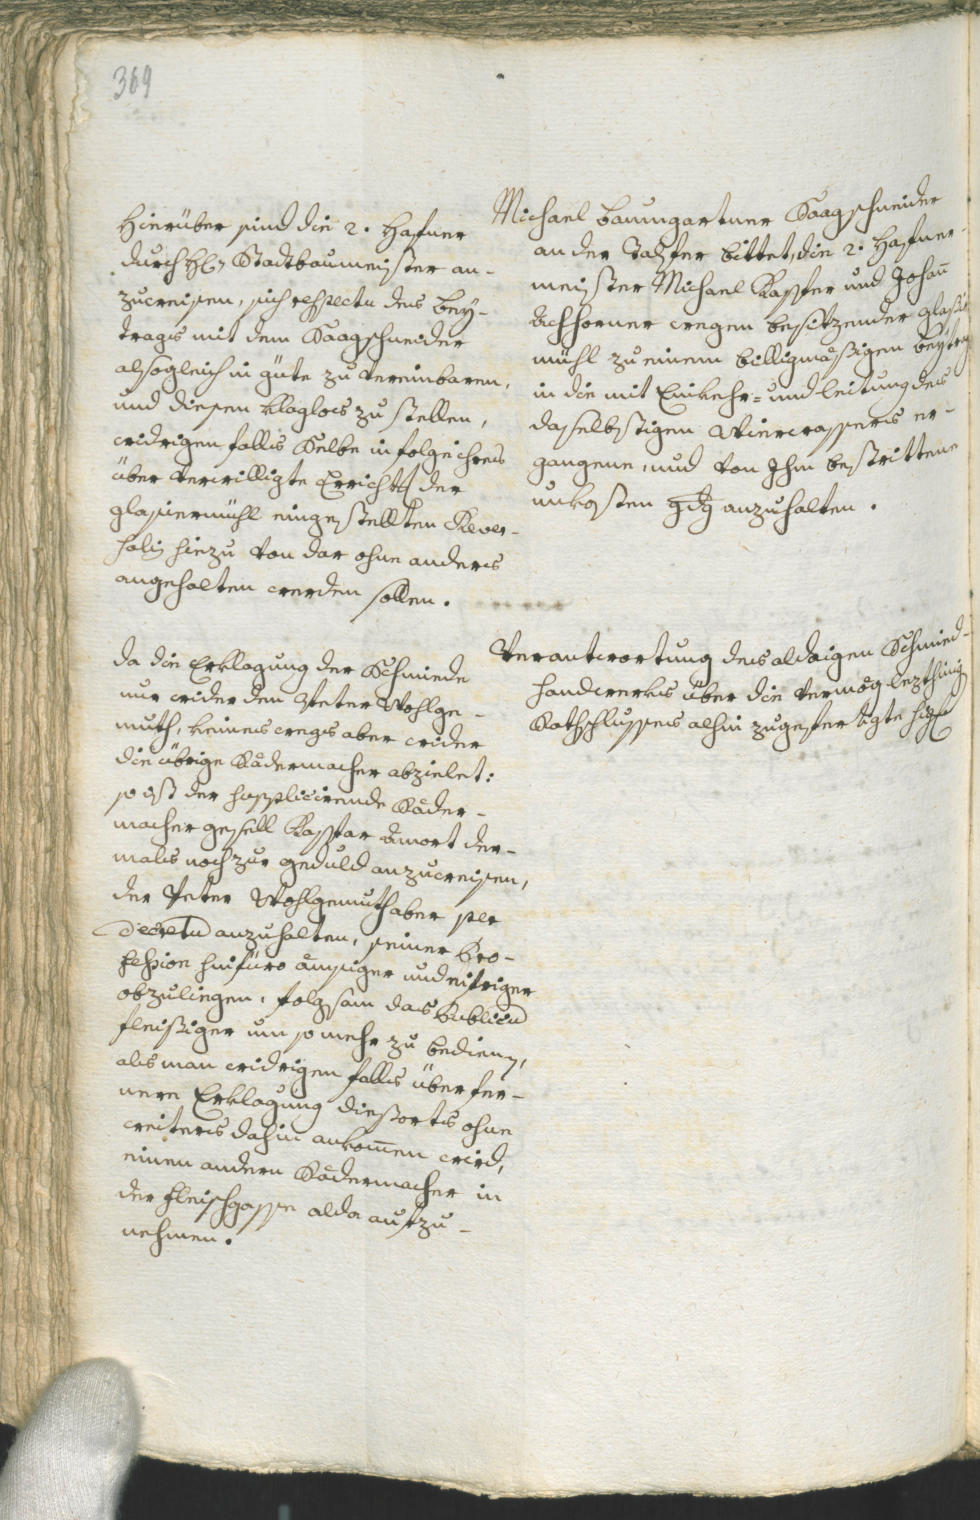 369
Hierüber sind die 2. Hafner
durch H. Stadtbaumeister an-
zuweisen, sich respectu des Bey-
trags mit dem Saagschneider
alsogleich in güte zu vereinbaren,
und diesen klaglos zu stellen,
widrigen falls Selbe in folge ihres
über verwilligte Errichtg der
glasiermühl eingestellten Rever-
salis hiezu von dar ohne anders
angehalten werden sollen.
da die Erklagung der Schmiede
nur wider den Peter Wohlge-
muth, keines wegs aber wider
die übrige Rädermacher abzielet:
so ist der supplicirende Räder-
macher gesell Caspar Amort der-
mals noch zur geduld anzuweisen,
der Peter Wohlgemuth aber per
Decretu anzuhalten, seiner Pro-
fession hinfüro ämsiger und eifriger
obzuliegen, folgsam das Publicu
fleißiger um so mehr zu bedienen,
als man widrigen falls über fer-
nere Erklagung dießorts ohne
weiters dahin ankomen wird,
einen andern Rädermacher in
der fleischgasse alda aufzu-
nehmen.
Michael Baumgartner Saagschneider
an der Talfer bittet, die 2. Hafner-
meister Michael Kapfer und Johan
Achhorner wegen besitzender glasir
mühl zu einem billigmäßigen beytrag
in die mit Einkehr- und leitung des
daselbstigen Wierwassers er-
gangene, und von Ihm bestrittene
unkosten gdg anzuhalten.
Verantwortung des aldaigen Schmied-
handwerks über die vermög lezthinig
Rathschlusses alhin zugefertigte